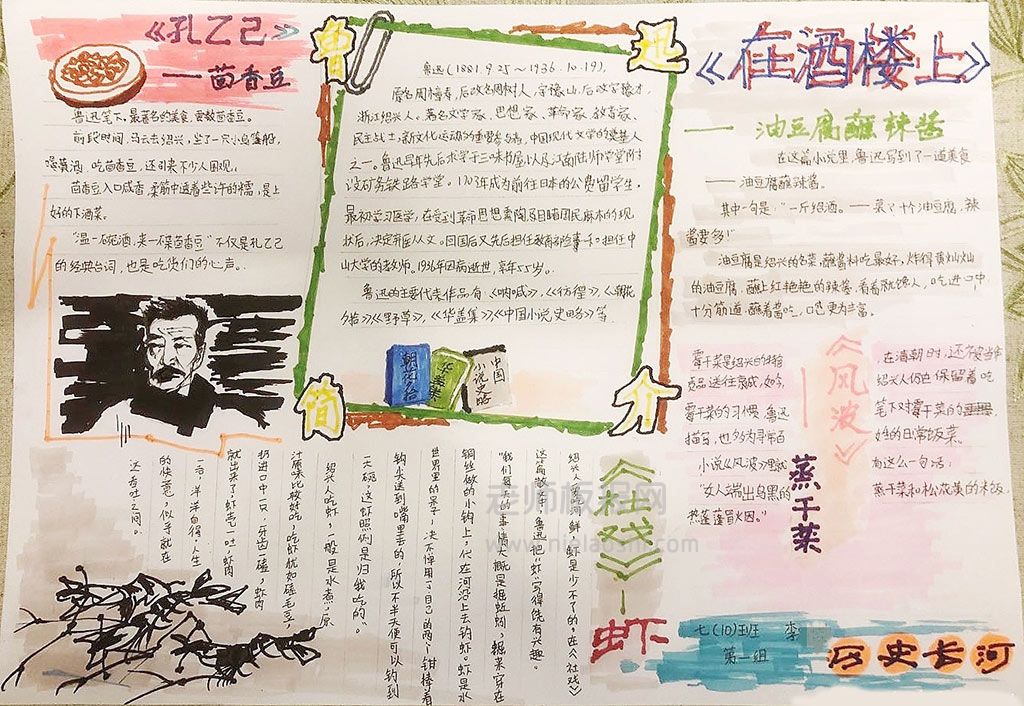 《孔乙己》
——茴香豆
鲁迅笔下,最著名的美食,要数茴香豆。
前段时间,马云去绍兴,坐了一只小乌篷船,
喝黄酒,吃茴香豆,还引来不少人围观,
茴香豆入口咸香,柔韧中透着些许的糯,是上
好的下酒菜。
“温一碗酒,来一碟茴香豆”不仅是孔乙己
的经典台词,也是吃货们的心声。
鲁迅
鲁迅(1881.9.25~1936.10.19),
原名周樟寿,后改名周树人,字豫山,后改字豫才,
浙江绍兴人。著名文学家、思想家、革命家、教育家、
民主战士,新文化运动的重要参与者,中国现代文学的奠基人
之一。鲁迅早年先后求学于三味书屋以及江南陆师学堂附
设矿务铁路学堂。1703年成为前往日本的公费留学生,
最初学习医学,在受到革命思想熏陶及目睹国民麻木的现
状后,决定弃医从文。回国后又先后担任教育部佥事和担任中
山大学的老师。1936年因病逝世,享年55岁。
鲁迅的主要代表作品有《呐喊》,《彷徨》,《朝花
夕拾》《野草》,《华盖集》《中国小说史略》等
朝花夕拾
华盖集
中国
小说史略
简介
《在酒楼上》
——油豆腐蘸辣酱
在这篇小说里,鲁迅写到了一道美食
——油豆腐蘸辣酱。
其中一句是:“一斤绍酒。——菜?十个油豆腐,辣
酱要多!”
油豆腐是绍兴的名菜,蘸酱料吃最好,炸得黄灿灿
的油豆腐,蘸上红艳艳的辣酱,看着就馋人,吃进口中,
十分筋道,蘸着酱吃,口感更为丰富。
《风波》
——
蒸干菜
霉干菜是绍兴的特
在清朝时,还被当作
贡品送往京城,如今,
绍兴人仍在保留着吃
霉干菜的习惯,鲁迅
笔下对霉干菜的
描写,也多为寻常百
姓的日常饭菜。
小说《风波》里就
有这么一句话:
“女人端出乌黑的
蒸干菜和松花黄的米饭,
热蓬蓬冒火因。”
《社戏》—虾
绍兴人爱吃鲜,虾是少不了的,在《社戏》
这篇散文里,鲁迅把“虾”写得饶有兴趣。
“我们每天的事情大概是掘蚯蚓,掘来穿在
铜丝做的小钩上,伏在河沿上去钓虾。虾是水
世界里的呆子,决不惮用了自己的两个钳捧着
钩尖送到嘴里去的,所以不半天便可以钓到
一大碗,这虾照例是归我吃的。”
绍兴人吃虾,一般是水煮,原
汁原味比较好吃,吃虾犹如磕毛豆,
扔进口中一只,牙齿一磕,虾肉
就出来了,虾壳一吐,虾肉
一吞,洋洋自得,人生
的快意,似乎就在
这吞吐之间。
七(10)班 李
第一组
历史长河
老师板报网